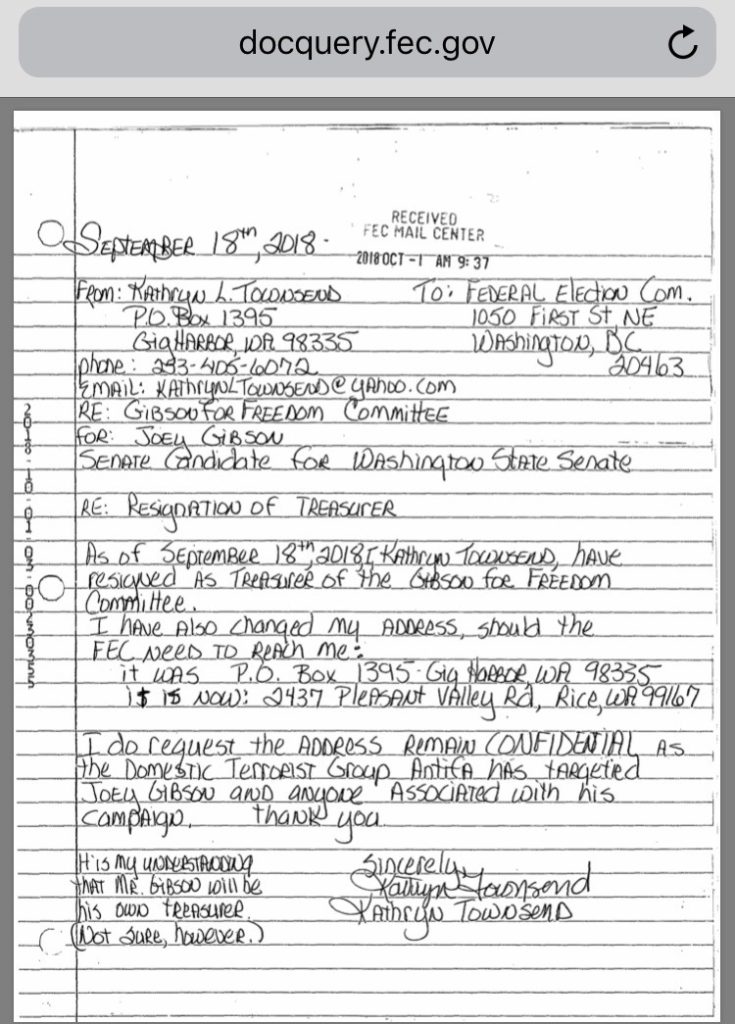 docquery.fec.gov
RECEIVED
FEC MAIL CENTER
2018 OCT -1 AM 9:37
September 18th, 2018.
From: Kathryn L. Townsend To: Federal Election Com.
P.O. Box 1395 1050 First St NE
Gig Harbor, WA 98335 Washington, DC
phone: 253-405-6072 20463
Email: KathrynLTownsend@yahoo.com
RE: Gibson for Freedom Committee
for: Joey Gibson
Senate Candidate for Washington State Senate
RE: Resignation of Treasurer
As of September 18th, 2018 I, Kathryn Townsend, have
resigned as Treasurer of the Gibson for Freedom
Committee.
I have also changed my address, should the
FEC need to reach me:
it was P.O. Box 1395 - Gig Harbor, WA 98335
it is now: 2437 Pleasant Valley Rd, Rice, WA 99167
I do request the address remain CONFIDENTIAL as
the Domestic Terrorist Group Antifa has targeted
Joey Gibson and anyone associated with his
campaign. Thank you
It is my understanding
that Mr. Gibson will be
his own treasurer.
(Not sure, however.)
Sincerely,
Kathryn Townsend
Kathryn Townsend